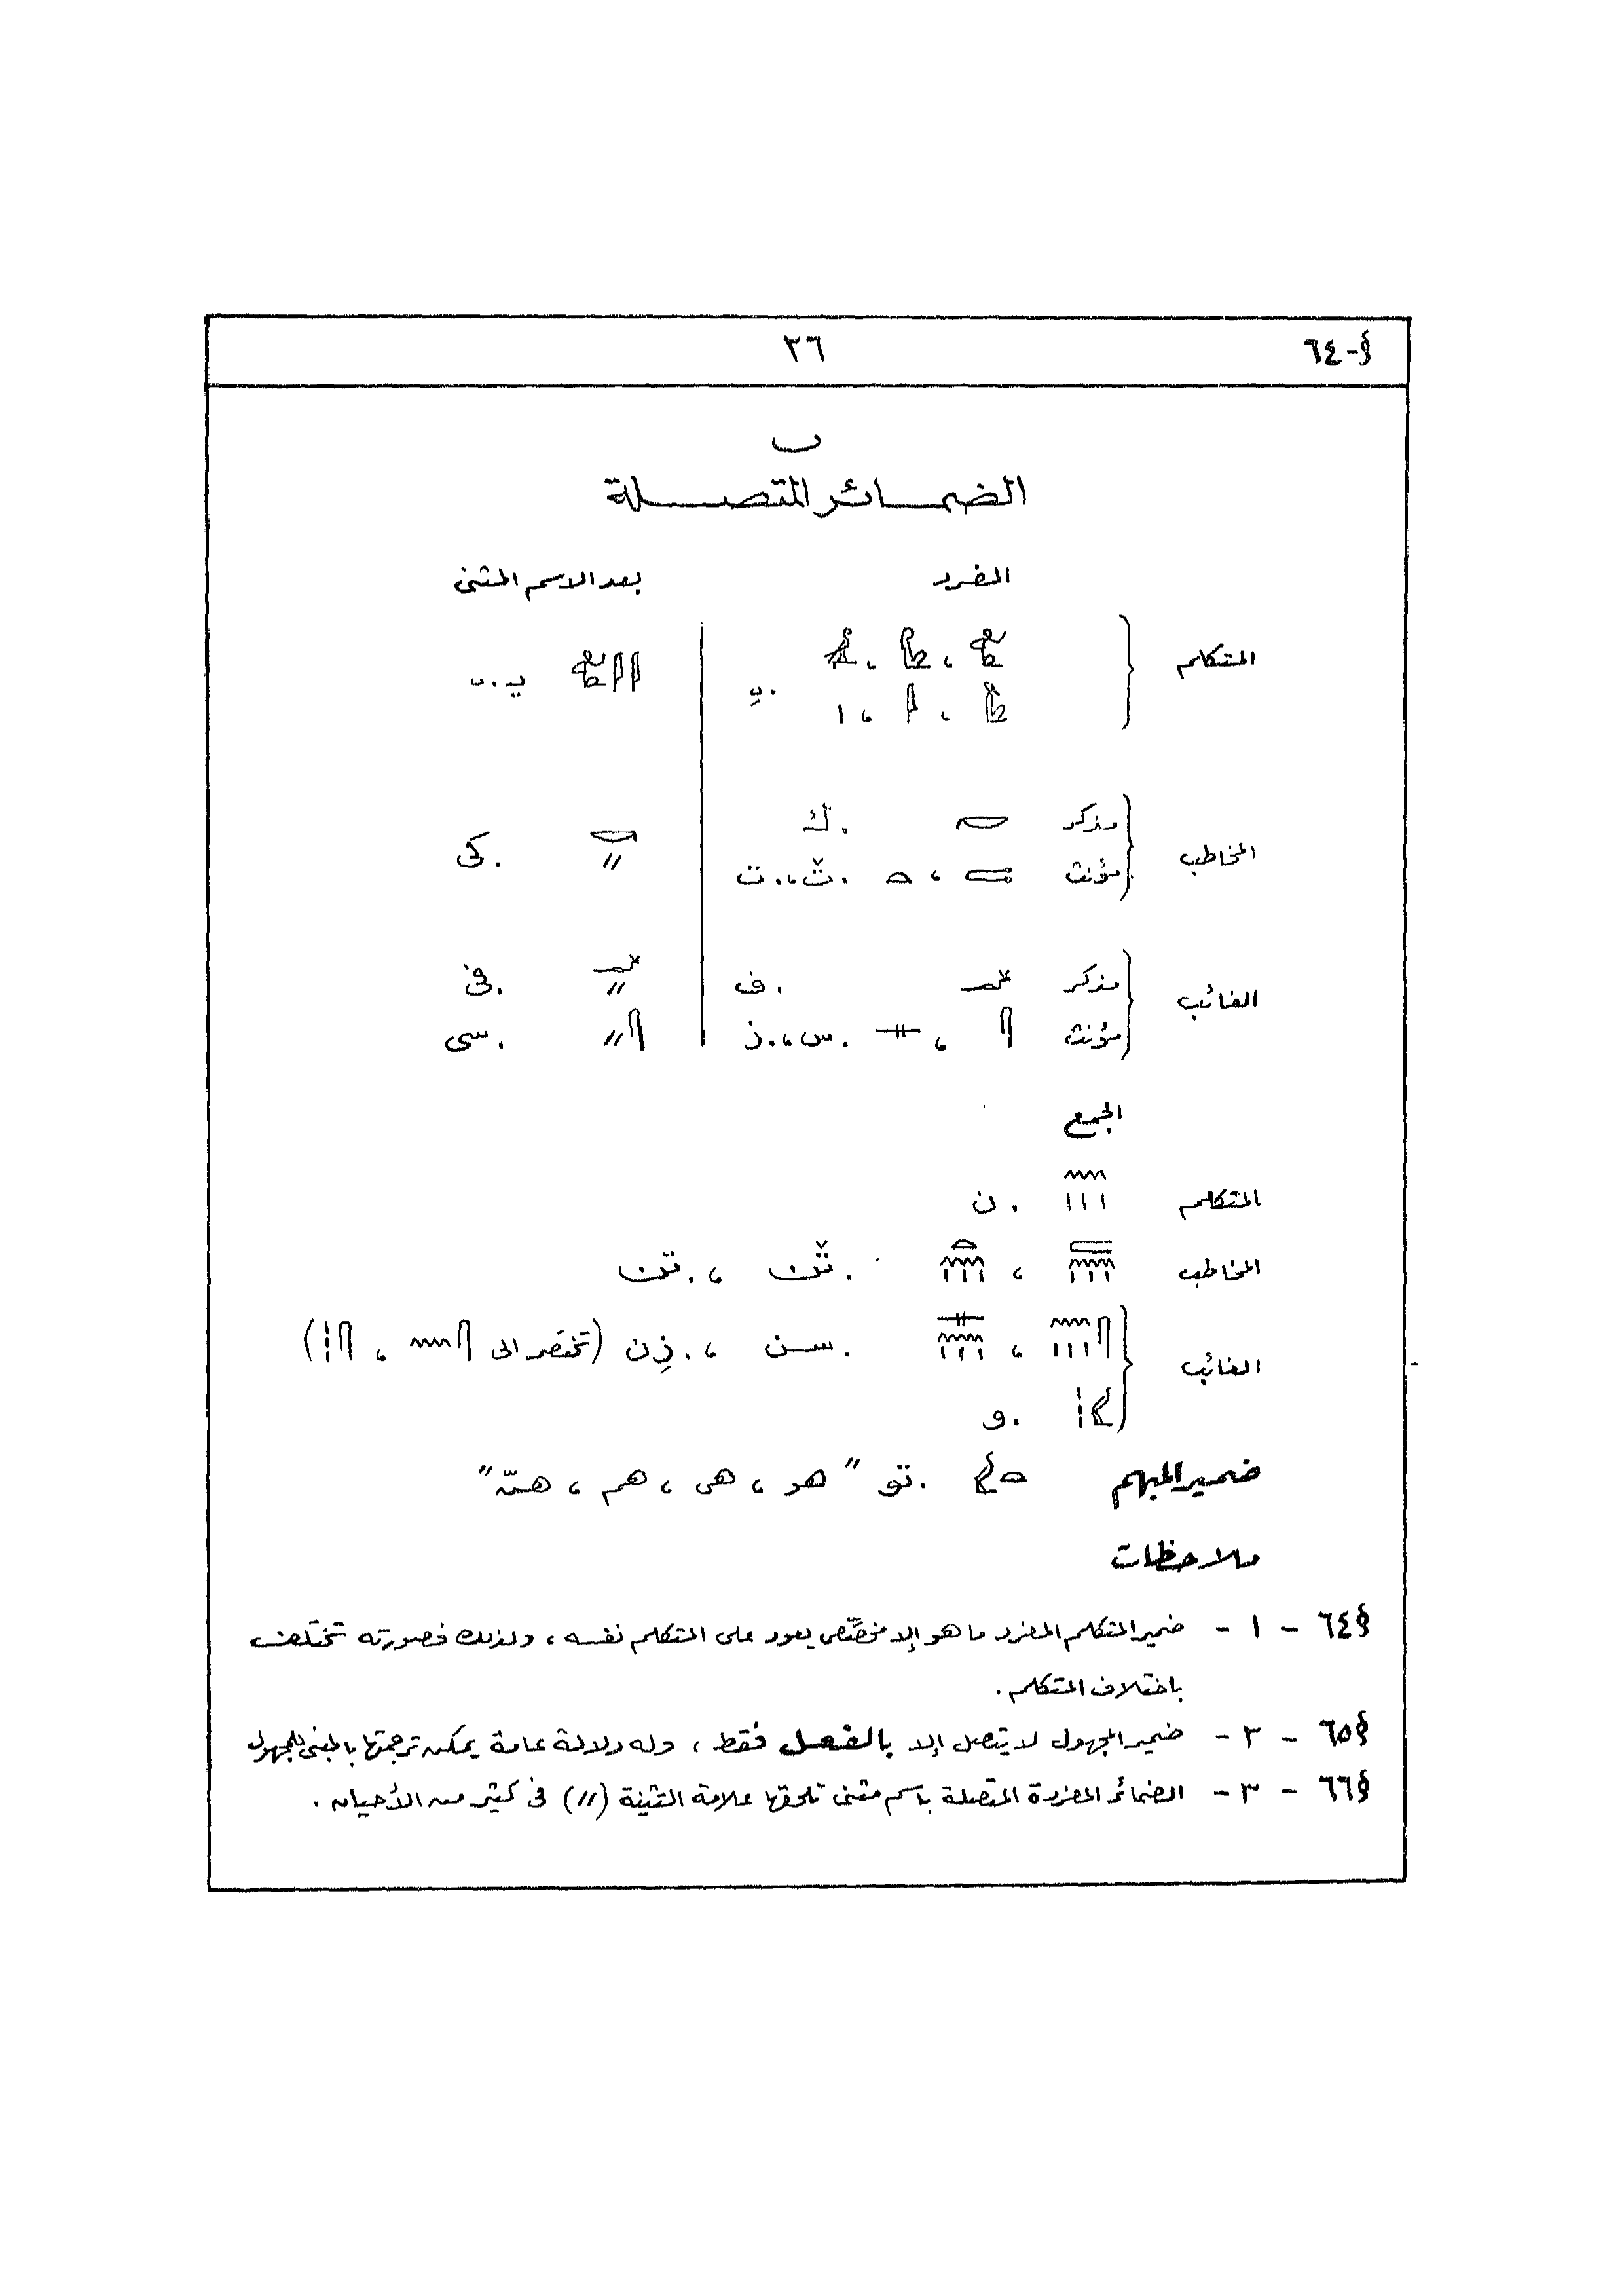 §-٦٤ ٣٦
ب
الضمائر المتصلة
المفرد بعد الاسم المثنى
المتكلم 𓀀 ، 𓁐 ، 𓀭
𓀻 ، 𓇋 ، 𓏤 .ي 𓇋𓇋𓀀 .ي
المخاطب
مذكر 𓎡 .ك 𓎡𓏭 .كى
مؤنث 𓍿 ، 𓏏 .ث ، .ت
الغائب
مذكر 𓆑 .ف 𓆑𓏭 .فى
مؤنث 𓋴 ، 𓊃 .س ، .ز 𓋴𓏭 .سى
الجمع
المتكلم 𓈖𓏥 .ن
المخاطب 𓍿𓈖𓏥 ، 𓏏𓈖𓏥 .ثن ، .تن
الغائب 𓋴𓈖𓏥 ، 𓊃𓈖𓏥 .سن ، .زِن (تختصر الى 𓋴𓈖 ، 𓋴𓏥)
𓅱𓏥 .و
ضمير المبهم 𓏏𓅱 .تو "هو ، هى ، هم ، هنّ"
ملاحظات
§٦٤ - ١ - ضمير المتكلم المفرد ما هو إلا مخصّص يعود على المتكلم نفسه ، ولذلك فصورته تختلف
باختلاف المتكلم .
§٦٥ - ٢ - ضمير المجهول لا يتصل إلا بالفعل فقط ، وله دلالة عامة يمكن ترجمتها بالمبنى للمجهول
§٦٦ - ٣ - الضمائر المفردة المتصلة باسم مثنى تلحقها علامة التثنية (//) فى كثير من الأحيان .